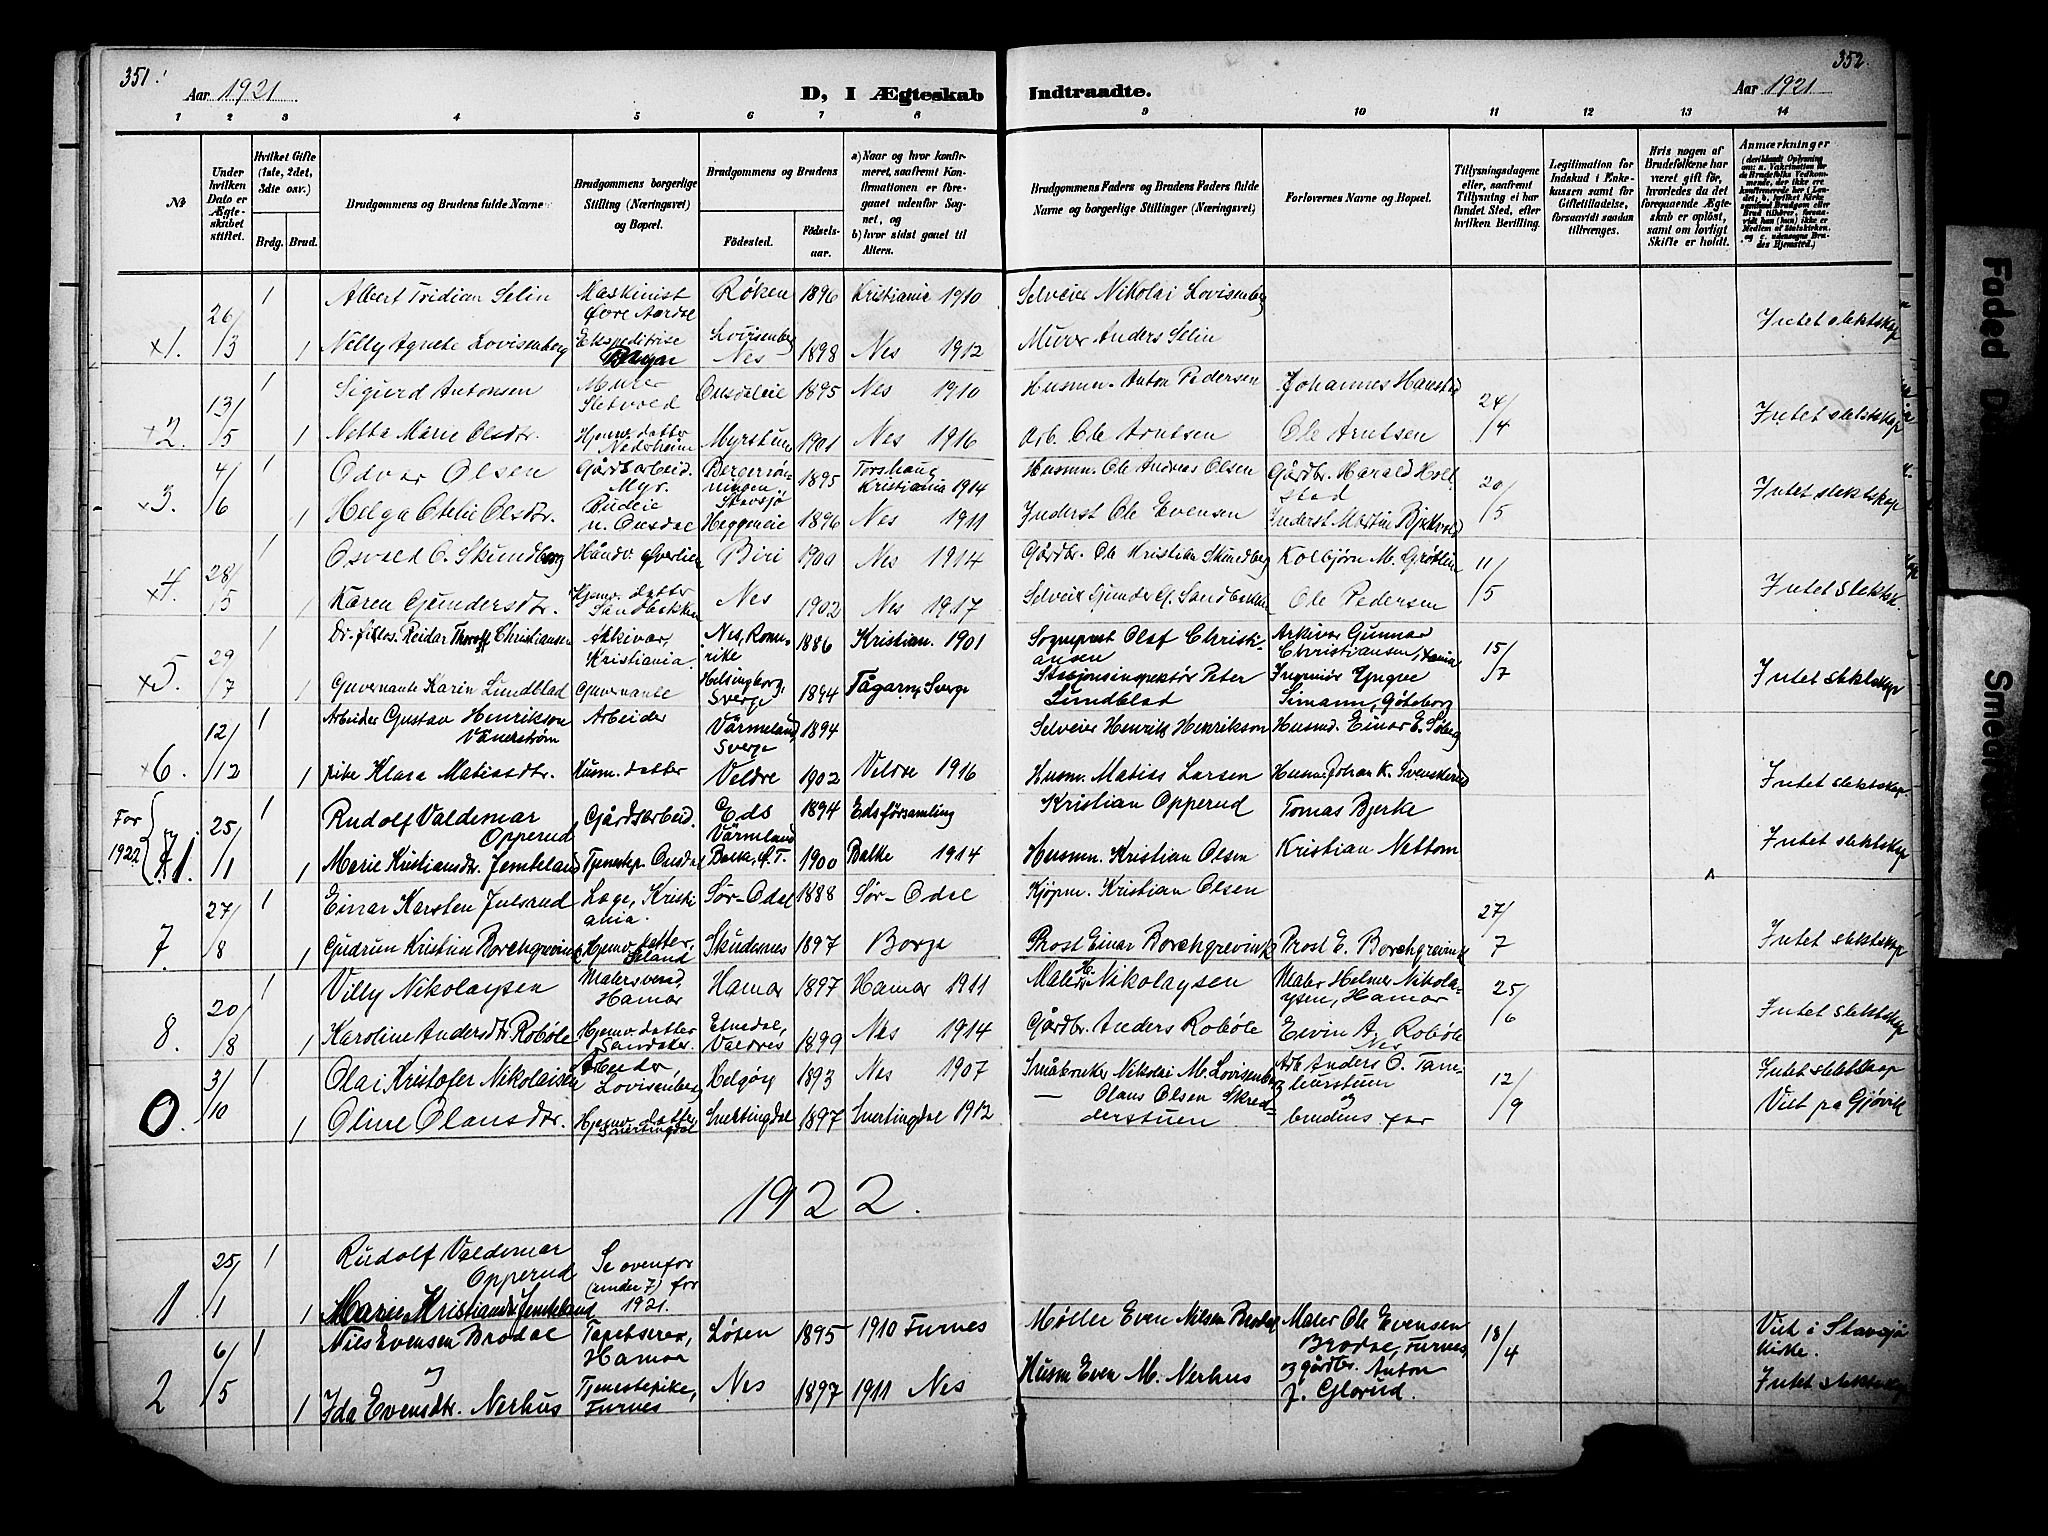 351.
Aar 1921.
D, I Ægteskab
Indtraadte.
352.
Aar 1921
1 2 3 4 5 6 7 8 9 10 11 12 13 14
No
Under hvilken Dato er Ægteskabet stiftet.
Hvilket Gifte (1ste, 2det, 3die osv.)
Brdg. Brud.
Brudgommens og Brudens fulde Navne
Brudgommens borgerlige Stilling (Næringsvei) og Bopæl.
Brudgommens og Brudens
Fødested. Fødselsaar.
a) Naar og hvor konfirmeret, saafremt Konfirmationen er foregaaet udenfor Sognet, og
b) hvor sidst gaaet til Alters.
Brudgommens Faders og Brudens Faders fulde Navne og borgerlige Stillinger (Næringsvei)
Forlovernes Navne og Bopæl.
Tillysningsdagene eller, saafremt Tillysning ei har fundet Sted, efter hvilken Bevilling.
Legitimation for Indskud i Enkekassen samt for Giftetilladelse, forsaavidt saadan tiltrænges.
Hvis nogen af Brudefolkene har været gift før, hvorledes da det foregaaende Ægteskab er opløst, samt om lovligt Skifte er holdt.
Anmærkninger
26/3 1 Albert Tridian Selin Maskinist Øvre Aardse Røken 1896 Kristiania 1910 Selveier Nikolai Lovisenberg
x1. 1 Nelly Agnete Lovisenberg Ekspeditrise Lovisenberg Nes 1898 Nes 1912 Murer Anders Selin Intet slektskap
13/5 1 Sigurd Antonsen Murer Sletvold Onsdaleie 1895 Nes 1910 Husmn. Anton Pedersen Johannes Hanstad 24/4
x2. 1 Netta Marie Olsdtr. Hjemv. datter Nedsheim Myrstuen 1901 Nes 1916 Arb. Ole Arntsen Ole Arntsen Intet slektskap
4/6 1 Odvar Olsen Gårdsarbeid. Myr. 1895 Torshaug Kristiania 1914 Husmn. Ole Andreas Olsen Gårdbr. Harald Holstad 20/5
x3. 1 Helga Otelie Olsdtr. Budeie n. Onsdal Stavsjø Heggeneie 1896 Nes 1911 Inderst Ole Evensen Inderst Martin Intet slektskap
28/5 1 Osvald O. Skundberg Håndv. Øverlien Biri 1900 Nes 1914 Gårdbr. Ole Kristian Skundberg Kolbjørn M. Grøtlien 11/5
x4. 1 Karen Gundersdtr. Hjemv. datter Sandbakken Nes 1902 Nes 1917 Selveier Gunder G. Sandbakken Ole Pedersen Intet slektsk.
29/7 1 Dr. filos. Reidar Thoralf Christiansen Arkivar, Kristiania. Nes, Romerike 1886 Kristian. 1901 Sogneprest Olaf Christiansen Arkivar Gunnar Christiansen, Kania 15/7
x5. 1 Guvernante Karin Lundblad Guvernante Helsingborg, Sverge 1894 Fågarn, Sverge Stasjonsinspektør Peter Lundblad Ingeniør Yngve Simann, Göteborg Intet slektskap
12/12 1 Arbeider Gustav Henrikson Vänerstrøm Arbeider Värmeland, Sverge 1894 Selveier Henrik Henrikson Husmd. Einar E. Søberg
x6. 1 pike Klara Matiasdtr. Husm. datter Veldre 1902 Veldre 1916 Husm. Matias Larsen Husm. Johan K. Svenskerud Intet slektskap.
For 1922 25/1 1 Rudolf Valdemar Opperud Gårdsarbeid. Eds Värmeland 1894 Eds församling Kristian Opperud Tomas Bjerke
1. 1 Marie Kristiansdtr. Jemteland Tjenestep. Onsdal Balke, Ø.T. 1900 Balke 1914 Husmn. Kristian Olsen Kristian Nettom Intet slektskap
27/8 1 Einar Karsten Julsrud Læge, Kristiania. Sør-Odal 1888 Sør-Odal Kjøpm. Kristian Olsen 27/7
7. 1 Gudrun Kristine Borchgrevink Hjemv. datter, Skudesnes 1897 Borge Prost Einar Borchgrevink Prost E. Borchgrevink Intet slektskap
20/8 1 Villy Nikolaysen Malersvend, Hamar Hamar 1897 Hamar 1911 Maler H. Nikolaysen Maler Helmer Nikolaysen, Hamar 25/6
8. 1 Karoline Andersdtr. Robøle Hjemv. datter Sandaker. Etnedal, Valdres 1899 Nes 1914 Gårdbr. Anders Robøle Eivin A. Robøle Nes Intet slektskap
3/10 1 Olai Kristofer Nikolaisen Arbeider Lovisenberg Helgøy 1893 Nes 1907 Småbruker Nikolai M. Lovisenberg Arb. Anders O. og 12/9 Intet slektskap
0. 1 Oline Olansdtr. Hjemv. datter Snertingdal Snertingdal 1897 Snertingdal 1912 — Olaus Olsen Skredderstuen brudens far Viet på Gjøvik
1922.
25/1 1 Rudolf Valdemar Opperud Se ovenfor (under 7) for 1921.
1 1 Marie Kristiansdtr. Jemteland
6/5 1 Nils Evensen Brodal Tapetserer, Hamar Løten 1895 1910 Furnes Møller Even Nilsen Brodal Maler Ole Evensen Brodal, Furnes, 18/4 Viet i Stavsjø kirke.
2 og 1 Ida Evensdtr. Nerhus Tjenestepike, Furnes Nes 1897 1911 Nes Husm Even M. Nerhus og gårdbr. Anton J. Glorud. Intet slektskap
Faded